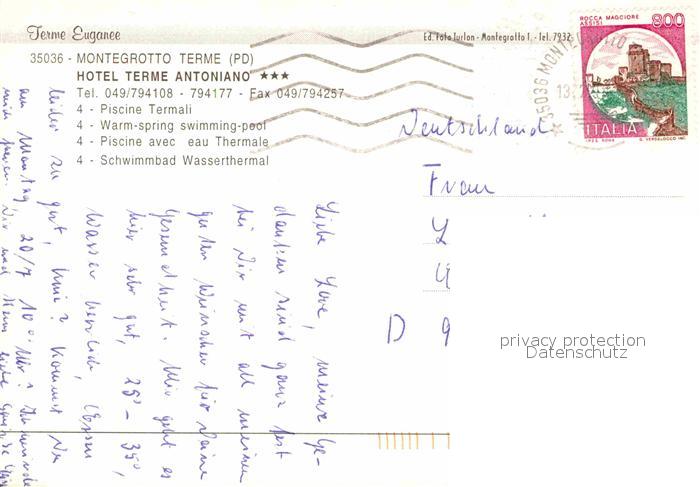 Terme Euganee
Ed. Foto Turlon - Montegrotto T. - Tel. 7932
35036 - MONTEGROTTO TERME (PD)
HOTEL TERME ANTONIANO ★★★
Tel. 049/794108 - 794177 - Fax 049/794257
4 - Piscine Termali
4 - Warm-spring swimming-pool
4 - Piscine avec eau Thermale
4 - Schwimmbad Wasserthermal
ROCCA MAGGIORE
ASSISI
800
ITALIA
35036 MONTEGROTTO
Deutschland
Frau
D 9
privacy protection
Datenschutz
Liebe Lore, meine Ge-
danken sind ganz fest
bei Dir mit all meinen
guten Wünschen für Deine
Gesundheit. Mir geht es
hier sehr gut, 25° - 35°,
Wasser herrlich, Essen
leider zu gut, Knie? Kommst Du
am Montag 20/7 10 Uhr? Ich würde
mich freuen. Dir und liebe